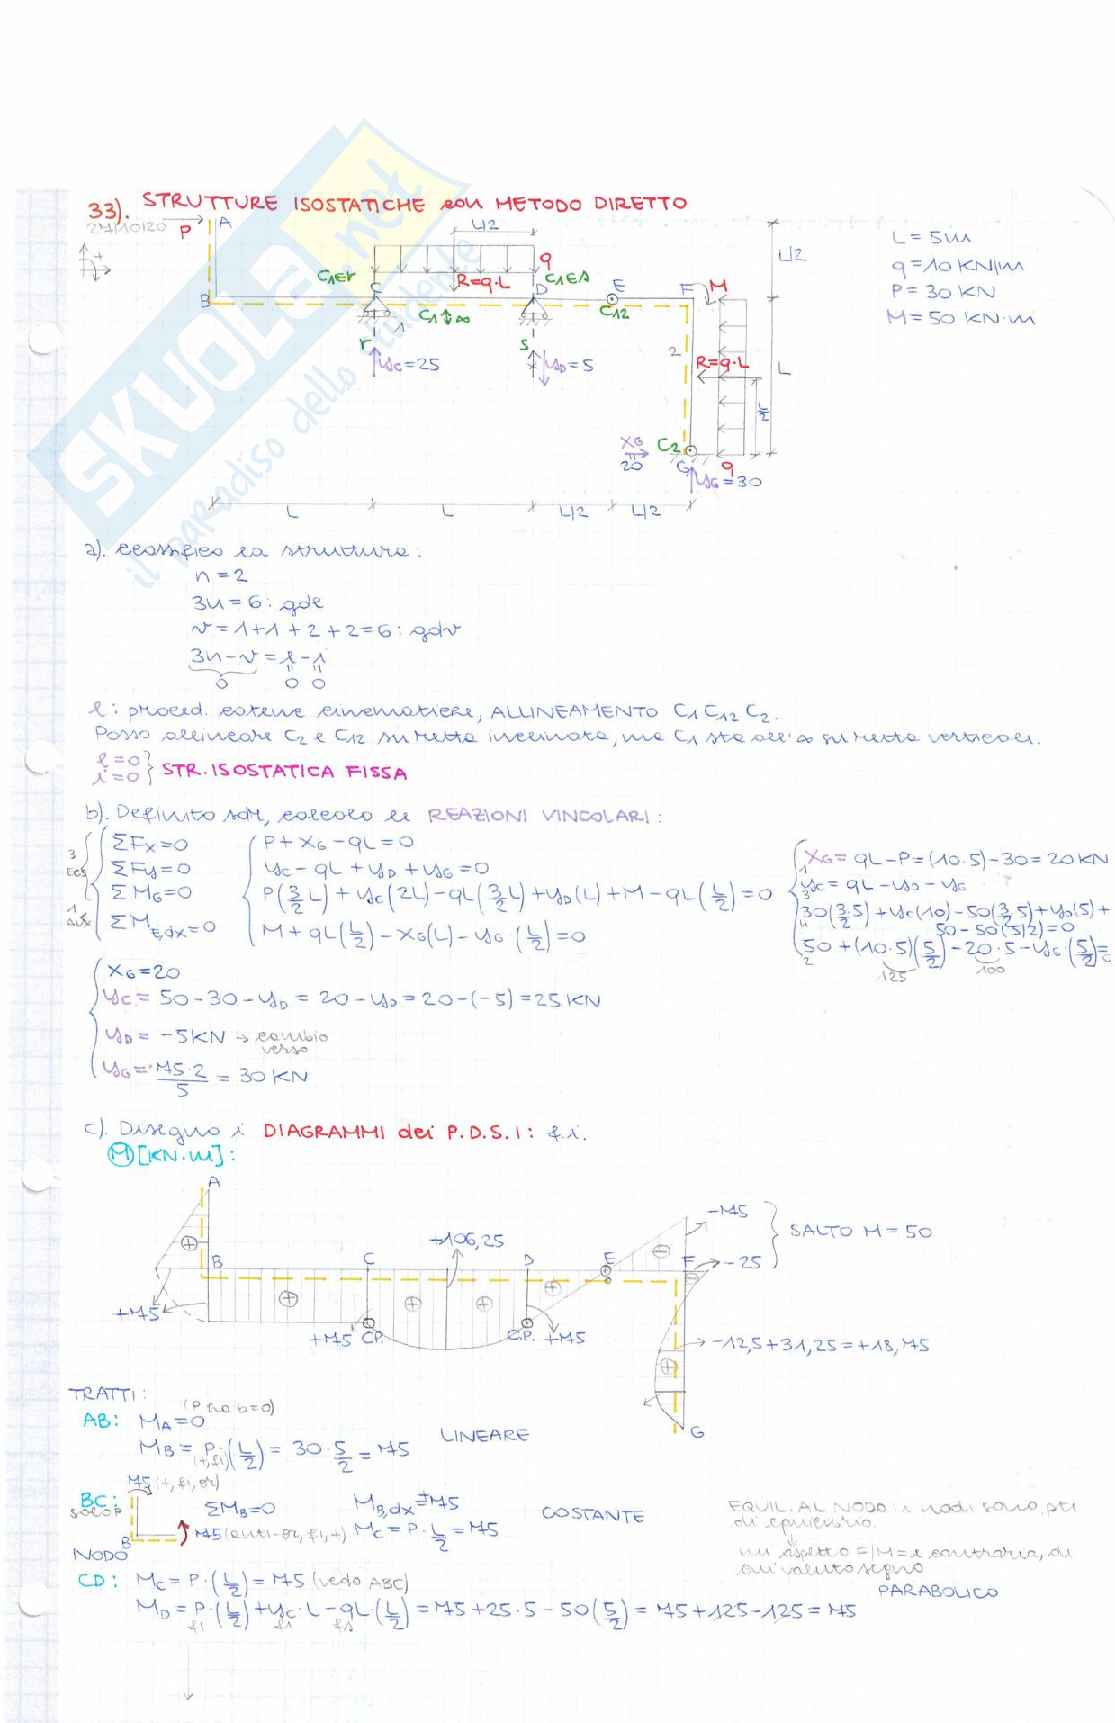 33). STRUTTURE ISOSTATICHE con METODO DIRETTO
27/10/20
P
A
L/2
L = 5m
q = 10 KN/m
P = 30 KN
M = 50 KN·m
L/2
C1Er
R=q·L
q
C1Es
C
D
E
F
M
B
1
C1 ∞
C12
r
yC = 25
s
yD = 5
2
R=q·L
L
L/2
XG
20
C2
G
q
yG = 30
L
L
L/2
L/2
SKUOLA.net
il paradiso dello studente
a). classifico la struttura:
n = 2
3n = 6: gdl
v = 1+1+2+2 = 6: gdv
3n - v = l - i
0 0 0
l: proced. catene cinematiche, ALLINEAMENTO C1 C12 C2.
Posso allineare C2 e C12 su retta inclinata, ma C1 sta all'∞ su retta verticale.
l = 0
i = 0 } STR. ISOSTATICA FISSA
b). Definito sdr, calcolo le REAZIONI VINCOLARI:
3 ECS
1 AUX
ΣFx=0
ΣFy=0
ΣMG=0
ΣME,dx=0
P + XG - qL = 0
yC - qL + yD + yG = 0
P(3/2 L) + yC(2L) - qL(3/2 L) + yD(L) + M - qL(L/2) = 0
M + qL(L/2) - XG(L) - yG (L/2) = 0
1 XG = qL - P = (10·5) - 30 = 20 KN
3 yC = qL - yD - yG
4 30(3/2·5) + yC(10) - 50(3/2·5) + yD(5) +
50 - 50(5/2) = 0
2 50 + (10·5)(5/2) - 20·5 - yG (5/2) =
125
100
XG = 20
yC = 50 - 30 - yD = 20 - yD = 20 - (-5) = 25 KN
yD = -5 KN → cambio verso
yG = 75·2/5 = 30 KN
c). Disegno i DIAGRAMMI dei P.D.S.I: f.i.
M [KN·m]:
A
-75
SALTO M = 50
+106,25
B
C
D
E
F
-25
+75
+75
CP.
CP.
+75
-12,5+31,25 = +18,75
G
TRATTI:
(P ha b=0)
AB: MA = 0
MB = P·(L/2) = 30·5/2 = 75
(+,fi)
LINEARE
75 (+, fi, or)
BC:
SOLO P
ΣMB=0
MB,dx = 75
COSTANTE
75 (anti-or, fi, +)
MC = P·L/2 = 75
B
NODO
EQUIL. AL NODO: i nodi sono pti
di equilibrio.
mi aspetto = |M| = e contrario, di
equivalente segno
CD: MC = P·(L/2) = 75 (vedo ABC)
PARABOLICO
MD = P·(L/2) + yC·L - qL(L/2) = 75 + 25·5 - 50(5/2) = 75 + 125 - 125 = 75
fi
fi
fs